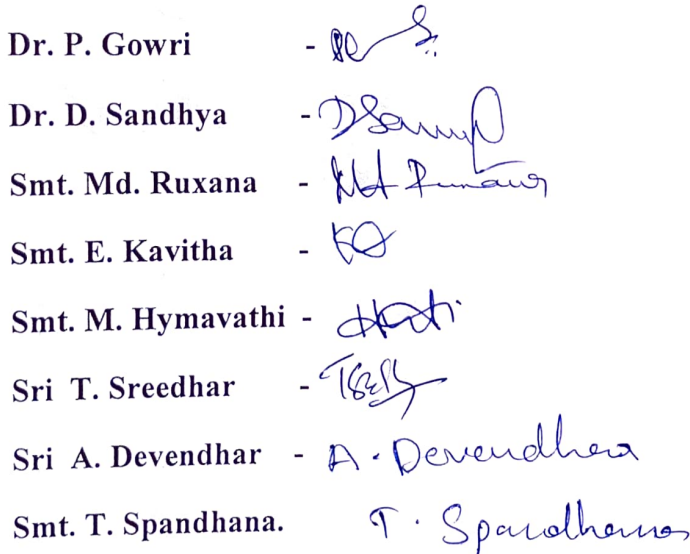 Dr. P. Gowri -
Dr. D. Sandhya -
Smt. Md. Ruxana -
Smt. E. Kavitha -
Smt. M. Hymavathi -
Sri T. Sreedhar -
Sri A. Devendhar - A. Devendhar
Smt. T. Spandhana. T. Spandhana